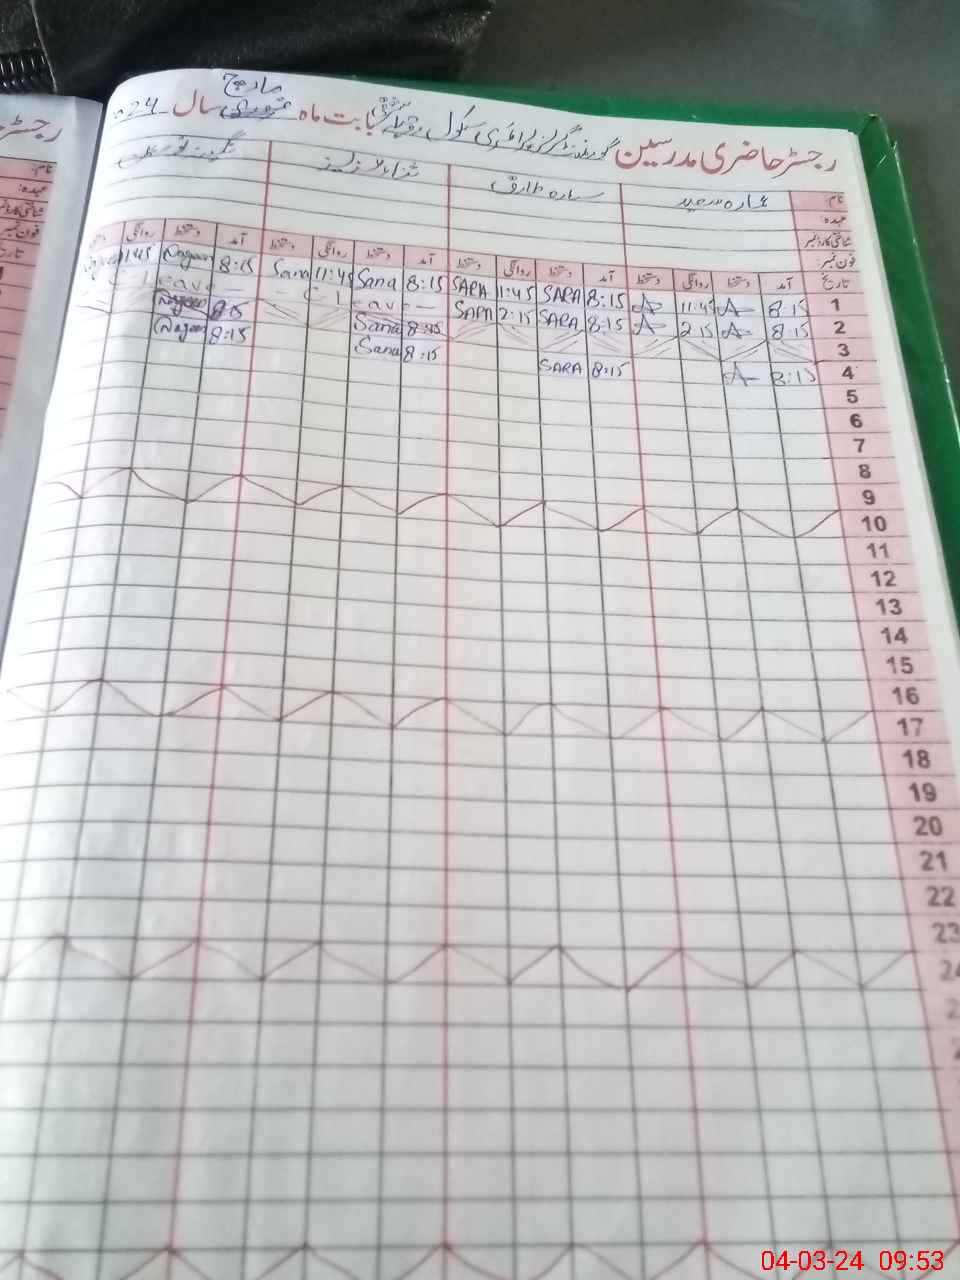 مارچ
رجسٹر حاضری مدرسین گورنمنٹ گرلز پرائمری سکول بابت ماہ فروری سال 24
نام: عمارہ سعید سارہ طارق ثناء
عہدہ:
شناختی کارڈ نمبر
فون نمبر:
تاریخ آمد دستخط روانگی دستخط آمد دستخط روانگی دستخط آمد دستخط روانگی دستخط آمد دستخط روانگی
1 8:15 A 11:45 A 8:15 SARA 1:45 SARA 8:15 Sana 11:45 Sana 8:15 Nageen 1:45
2 8:15 A 2:15 A 8:15 SARA 2:15 SARA — Leave — Leave
3 8:15 Sana 8:15 Nageen
4 8:15 A 8:15 SARA 8:15 Sana 8:15 Nageen
5
6
7
8
9
10
11
12
13
14
15
16
17
18
19
20
21
22
23
24
04-03-24 09:53